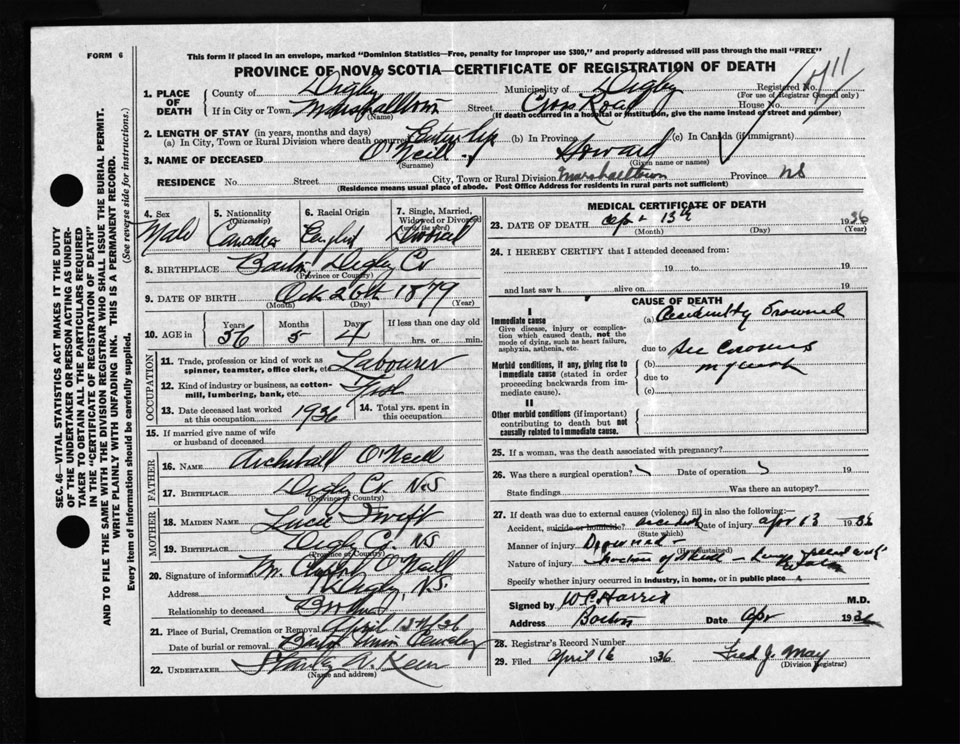 FORM 6
This form if placed in an envelope, marked "Dominion Statistics—Free, penalty for improper use $300," and properly addressed will pass through the mail "FREE"
PROVINCE OF NOVA SCOTIA—CERTIFICATE OF REGISTRATION OF DEATH
1. PLACE OF DEATH
County of Digby Municipality of Digby Registered No.
(For use of Registrar General only)
If in City or Town Marshalltown Street Cross Road House No.
(Name) (If death occurred in a hospital or institution, give the name instead of street and number)
2. LENGTH OF STAY (in years, months and days)
(a) In City, Town or Rural Division where death occurred Entire life (b) In Province (c) In Canada (if immigrant)
3. NAME OF DECEASED O'Neill Howard
(Surname) (Given name or names)
RESIDENCE No. Street City, Town or Rural Division Marshalltown Province NS
(Residence means usual place of abode. Post Office Address for residents in rural parts not sufficient)
4. Sex Male
5. Nationality (Citizenship) Canadian
6. Racial Origin English
7. Single, Married, Widowed or Divorced (write the word)
8. BIRTHPLACE Barton Digby Co
(Province or Country)
9. DATE OF BIRTH Oct 26th 1879
(Month) (Day) (Year)
10. AGE in Years 56 Months 5 Days 4 If less than one day old hrs. or min.
OCCUPATION
11. Trade, profession or kind of work as spinner, teamster, office clerk, etc. Labourer
12. Kind of industry or business, as cotton-mill, lumbering, bank, etc.
13. Date deceased last worked at this occupation 1936
14. Total yrs. spent in this occupation
15. If married give name of wife or husband of deceased
FATHER
16. NAME Archibald O'Neill
17. BIRTHPLACE Digby Co. N.S
(Province or Country)
MOTHER
18. MAIDEN NAME Lucie Swift
19. BIRTHPLACE Digby Co. NS
(Province or Country)
20. Signature of informant M. O'Neill
Address Digby, N.S.
Relationship to deceased Brother
21. Place of Burial, Cremation or Removal
Date of burial or removal April 15th/36 Union Cemetery
22. UNDERTAKER Stanley
(Name and address)
MEDICAL CERTIFICATE OF DEATH
23. DATE OF DEATH Apr 13th 1936
(Month) (Day) (Year)
24. I HEREBY CERTIFY that I attended deceased from:
19 to 19
and last saw h alive on 19
CAUSE OF DEATH
I
Immediate cause
Give disease, injury or complication which caused death, not the mode of dying, such as heart failure, asphyxia, asthenia, etc.
(a) Accidentally Drowned
due to See Coroners
Morbid conditions, if any, giving rise to immediate cause (stated in order proceeding backwards from immediate cause).
(b)
due to
(c)
II
Other morbid conditions (if important) contributing to death but not causally related to immediate cause.
25. If a woman, was the death associated with pregnancy?
26. Was there a surgical operation? Date of operation 19
State findings Was there an autopsy?
27. If death was due to external causes (violence) fill in also the following:—
Accident, suicide or homicide? accident Date of injury Apr 13 1936
(State which)
Manner of injury Drowned
(How sustained)
Nature of injury
Specify whether injury occurred in industry, in home, or in public place
Signed by W.C. Harris M.D.
Address Barton Date Apr 1936
28. Registrar's Record Number
29. Filed April 16 1936 Fred J. May
(Division Registrar)
SEC. 46—VITAL STATISTICS ACT MAKES IT THE DUTY
OF THE UNDERTAKER OR PERSON ACTING AS UNDER-
TAKER TO OBTAIN ALL THE PARTICULARS REQUIRED
IN THE "CERTIFICATE OF REGISTRATION OF DEATH"
AND TO FILE THE SAME WITH THE DIVISION REGISTRAR WHO SHALL ISSUE THE BURIAL PERMIT.
WRITE PLAINLY WITH UNFADING INK. THIS IS A PERMANENT RECORD.
Every item of information should be carefully supplied. (See reverse side for instructions.)